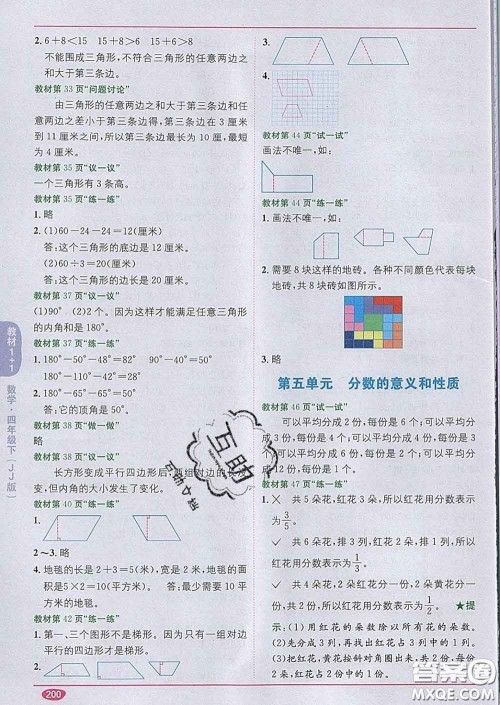 2. 6+8<15　15+8>6　15+6>8
不能围成三角形,不符合三角形的任意两边之
和大于第三条边。
教材第 33 页“问题讨论”
由三角形的任意两边之和大于第三条边和任
意两边之差小于第三条边得,第三条边在 3 厘米
到 11 厘米之间,所以第三条边最长为 10 厘米,最短
为 4 厘米。
教材第 35 页“议一议”
一个三角形有 3 条高。
教材第 35 页“练一练”
1. 略
2. (1)60-24-24=12(厘米)
答:这个三角形的底边是 12 厘米。
(2)60÷3=20(厘米)
答:这个三角形的边长是 20 厘米。
教材第 37 页“议一议”
(1)90°　(2)2 个。因为这样才能满足任意三角形
的内角和是 180°。
教材第 37 页“练一练”
1. 180°-50°-48°=82°　180°-90°-40°=50°
2. 180°-65°-65°=50°
答:它的顶角是
教材第 38 页“做一做”
略
教材第 39 页“议一议”
长方形变成平行四边形后,两组对边的长度不
变,但内角的大小发生了变化。
教材第 40 页“练一练”
1.
2~3. 略
4. 地毯的长是 2+3=5(米),地毯的宽是 2 米,面
积是5×2=10(平方米)。　答:最少需要 10 平
方米的地毯。
教材第 42 页“练一练”
1. 第一、三个图形不是梯形。因为只有一组对边
平行的四边形叫作梯形。
2.
200
教材 1+1
数学·四年级下(JJ版)
3.
4.
教材第 44 页“试一试”
画法不唯一,如:
教材第 44 页“练一练”
1. 画法不唯一,如:
2. 需要 8 块这样的地砖。各种不同颜色代表每块
砖,共 8 块砖如图所示。
3. 略
第五单元　分数的意义和性质
教材第 46 页“试一试”
可以平均分成 2 份,每份是 6 个;可以平均分
成 3 份,每份是 4 个;可以平均分成 4 份,每份是
3 个;可以平均分成 6 份,每份是 2 个。
教材第 47 页“练一练”
1. × 共 5 朵花,红花 3 朵,所以红花用分数表示
为3/5。
✓ 共 6 朵花,排 3 列,红花 2 朵,排 1 列,所以红
花用分数表示为1/3。
✓ 共 4 朵花,红花 2 朵占 1 份,2 朵黄花分一
份,共 2 份,所以红花用分数表示为1/2。　★提
示:(1)用红花的朵数除以所有花的朵数。
(2)先分成 3 列,再找出红花占 3 列中的 1 列。
(3)把红花、黄花按斜对角来圈出共有 2 份,红
花占 2 份中的 1 份。
互助
答案圈
MXQE.COM